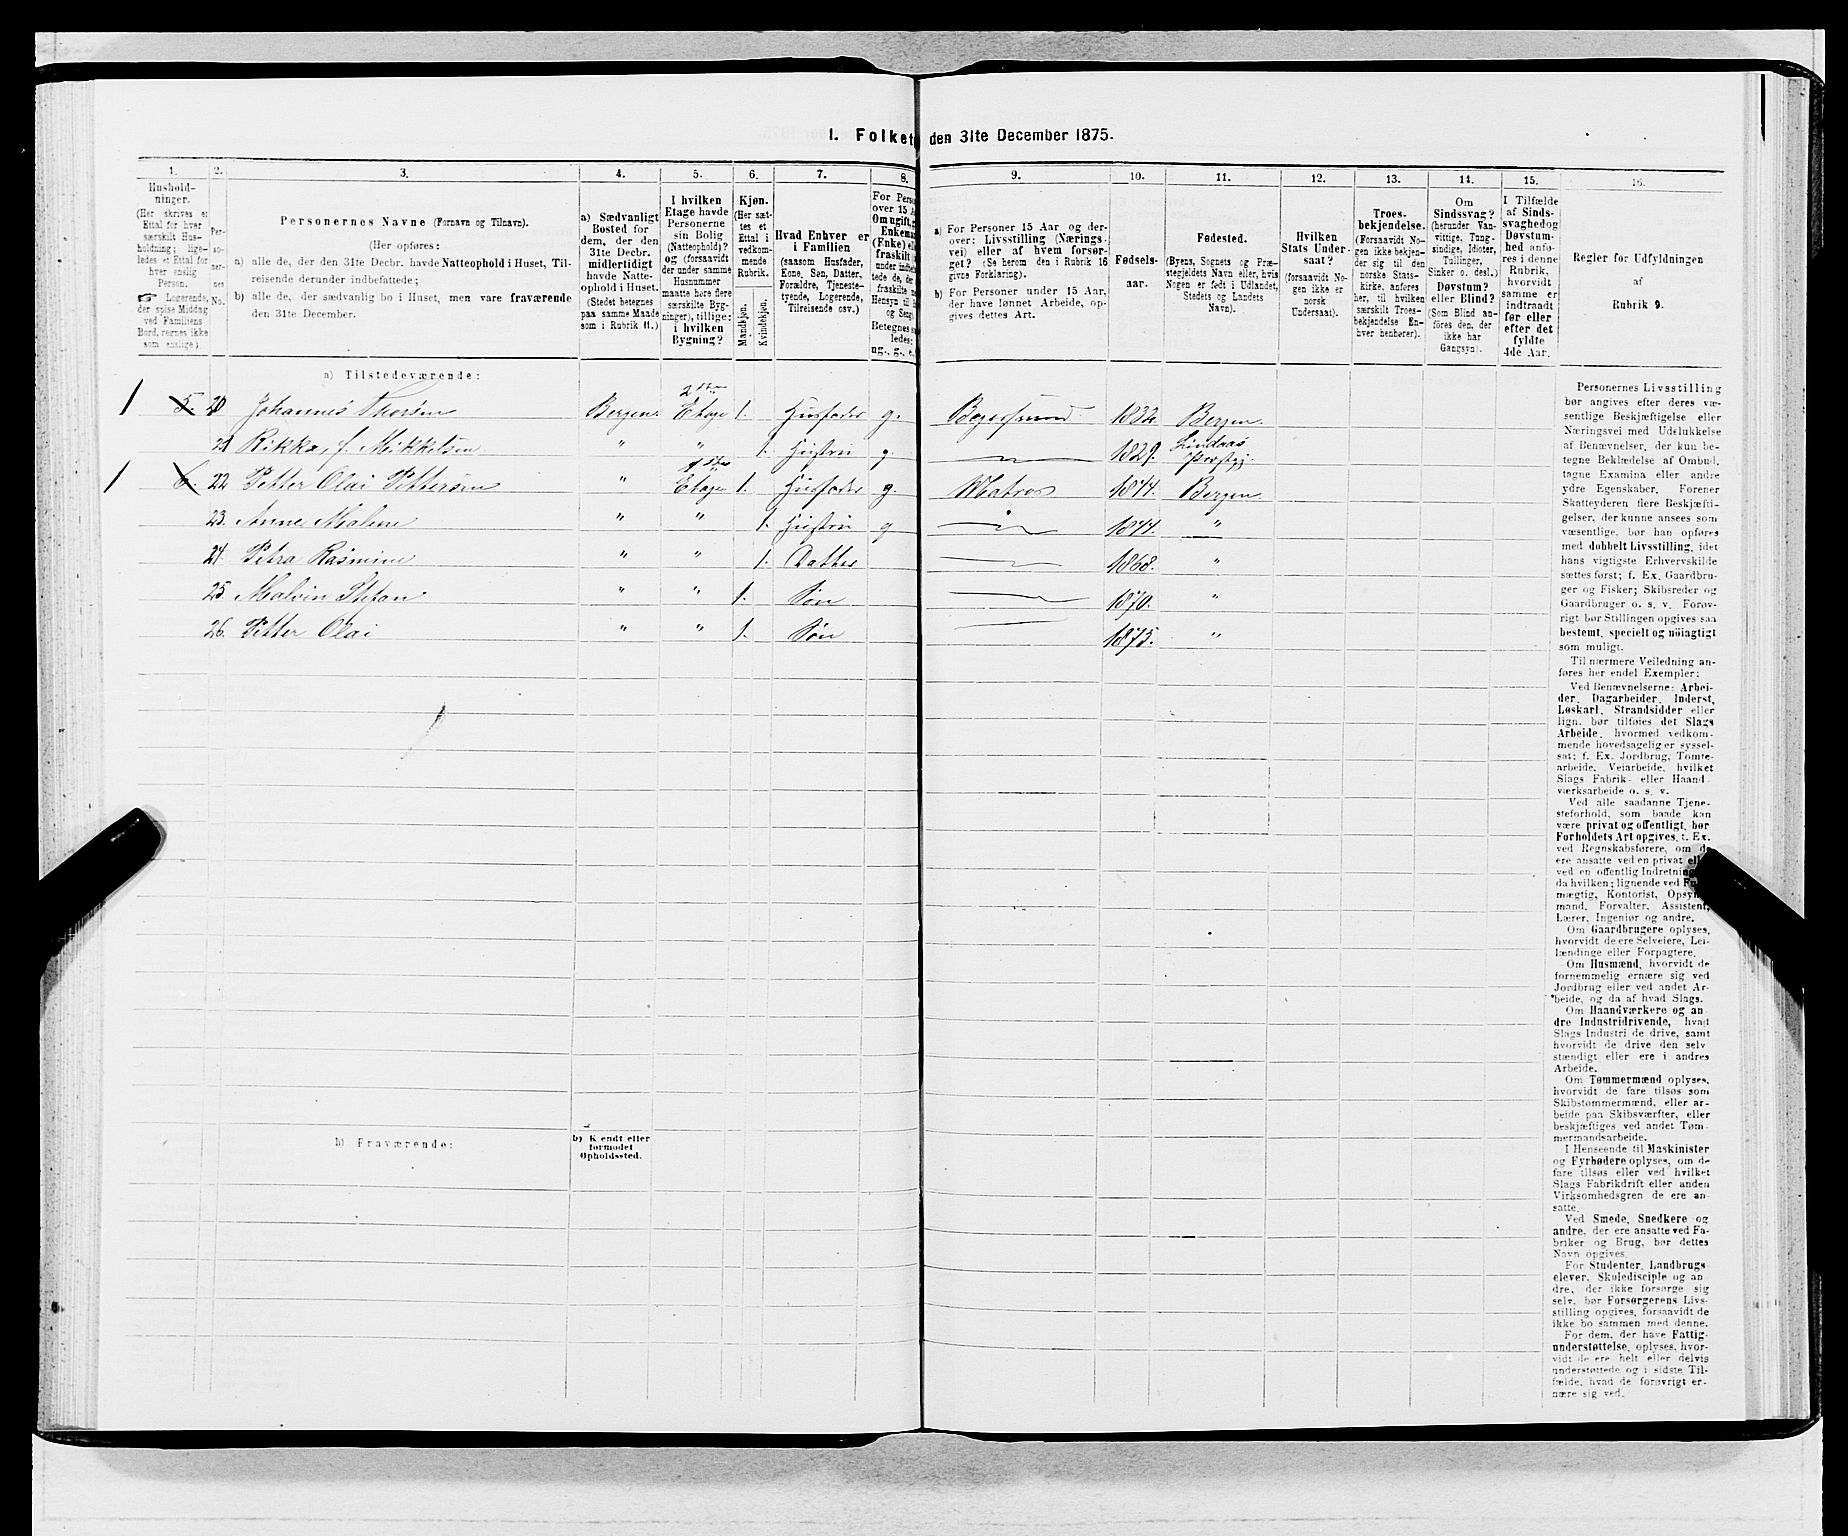 1. Folket den 31te December 1875.
1. 2. 3. 4. 5. 6. 7. 8. 9. 10. 11. 12. 13. 14. 15. 16.
Hushold-
ninger.
(Her skrives et
Ettal for hver
særskilt Hus-
holdning; lige-
ledes et Ettal for
hver enslig
Person.
☞ Logerende,
der spise Middag
ved Familiens
Bord, regnes ikke
som enslige).
Per-
so-
ner-
nes
No.
Personernes Navne (Fornavn og Tilnavn).
(Her opføres:
a) alle de, der den 31te Decbr. havde Natteophold i Huset, Til-
reisende derunder indbefattede;
b) alle de, der sædvanlig bo i Huset, men vare fraværende
den 31te December.
a) Sædvanligt
Bosted for
dem, der den
31te Decbr.
midlertidigt
havde Natte-
ophold i Huset.
(Stedet betegnes
paa samme Maade
som i Rubrik 11.)
I hvilken
Etage havde
Personerne
sin Bolig
(Natteophold)?
og (forsaavidt
der under samme
Husnummer
maatte høre flere
særskilte Byg-
ninger), tillige:
i hvilken
Bygning?
Kjøn.
(Her sæt-
tes et
Ettal i
vedkom-
mende
Rubrik.
Mandkjøn.
Kvindekjøn.
Hvad Enhver er
i Familien
(saasom Husfader,
Kone, Søn, Datter,
Forældre, Tjeneste-
tyende, Logerende,
Tilreisende osv.)
For Perso
over 15 A
Om ugift, g
Enkema
(Enke) ell
fraskilt
under indbe
tede de, de
fraskilte
Hensyn til B
og Seng
Betegnes s
ledes:
ug., g., e.
a) For Personer 15 Aar og der-
over: Livsstilling (Nærings-
vei) eller af hvem forsør-
get? (Se herom den i Rubrik 16
givne Forklaring).
b) For Personer under 15 Aar,
der have lønnet Arbeide, op-
gives dettes Art.
Fødsels-
aar.
Fødested.
(Byens, Sognets og Præ-
stegjeldets Navn eller, hvis
Nogen er født i Udlandet,
Stedets og Landets
Navn).
Hvilken
Stats Under-
saat?
(forsaavidt No-
gen ikke er
norsk
Undersaat).
Troes-
bekjendelse.
(Forsaavidt No-
gen ikke bekjen-
der sig til den
norske Stats-
kirke, anføres
her, til hvilken
særskilt Troes-
bekjendelse En-
hver henhører).
Om
Sindssvag?
(herunder Van-
vittige, Tung-
sindige, Idioter,
Tullinger,
Sinker o. desl.)
Døvstum?
eller Blind?
(Som Blind an-
føres den, der
ikke har
Gangsyn).
I Tilfælde
af Sinds-
svaghed og
Døvstum-
hed anfø-
res i denne
Rubrik,
hvorvidt
samme er
indtraadt
før eller
efter det
fyldte
4de Aar.
Regler for Udfyldningen
af
Rubrik 9.
a) Tilstedeværende:
1 5. 20 Johannes Thorsen Bergen 2den Etage 1. Husfader g. Bogersmand 1832. Bergen
21 Rikka, f. Mikkelsen " " 1. Hustru g 1829. Lindaas Prstgj.
1 6. 22 Petter Olai Pettersen " 1ste Etage 1. Husfader g. Matros 1844. Bergen
23. Anne Malene " " 1. Hustru g 1844. "
24. Petra Rasmine " " 1. Datter 1868. "
25. Malvin Stefan " " 1. Søn 1870. "
26. Petter Olai " " 1. Søn 1875. "
b) Fraværende:
b) Kjendt eller
formodet
Opholdssted.
Personernes Livsstilling
bør angives efter deres væ-
sentlige Beskjæftigelse eller
Næringsvei med Udelukkelse
af Benævnelser, der kun be-
tegne Beklædelse af Ombud,
tagne Examina eller andre
ydre Egenskaber. Forener
Skatteyderen flere Beskjæfti-
gelser, der kunne ansees som
væsentlige, bør han opføres
med dobbelt Livsstilling, idet
hans vigtigste Erhvervskilde
sættes først; f. Ex. Gaardbru-
ger og Fisker; Skibsreder og
Gaardbruger o. s. v. Forøv-
rigt bør Stillingen opgives saa
bestemt, specielt og nøiagtigt
som muligt.
Til nærmere Veiledning an-
føres her endel Exempler:
Ved Benævnelserne: Arbei-
der, Dagarbeider, Inderst,
Løskarl, Strandsidder eller
lign. bør tilføies det Slags
Arbeide, hvormed vedkom-
mende hovedsagelig er syssel-
sat; f. Ex. Jordbrug, Tomte-
arbeide, Veiarbeide, hvilket
Slags Fabrik- eller Haand-
værksarbeide o. s. v.
Ved alle saadanne Tjene-
steforhold, som baade kan
være privat og offentligt, bør
Forholdets Art opgives, t. Ex.
ved Regnskabsførere, om de
ere ansatte ved en privat eller
ved en offentlig Indretning
da hvilken; lignende ved
mægtig, Kontorist, Opsyns-
mand, Forvalter, Assistent,
Lærer, Ingeniør og andre.
Om Gaardbrugere oplyses,
hvorvidt de ere Selveiere, Lei-
lændinge eller Forpagtere.
Om Husmænd, hvorvidt de
fornemmelig ernære sig ved
Jordbrug eller ved andet Ar-
beide, og da af hvad Slags.
Om Haandværkere og an-
dre Industridrivende, hvad
Slags Industri de drive, samt
hvorvidt de drive den selv-
stændigt eller ere i andres
Arbeide.
Om Tømmermænd oplyses,
hvorvidt de fare tilsøs som
Skibstømmermænd, eller ar-
beide paa Skibsværfter, eller
beskjæftiges ved andet Tøm-
mermandsarbeide.
I Henseende til Maskinister
og Fyrbødere oplyses, om de
fare tilsøs eller ved hvilket
Slags Fabrikdrift eller anden
Virksomhedsgren de ere an-
satte.
Ved Smede, Snedkere og
andre, der ere ansatte ved Fa-
briker og Brug, bør dettes
Navn opgives.
For Studenter, Landbrugs-
elever, Skoledisciple og an-
dre, der ikke forsørge sig
selv, bør Forsørgerens Livs-
stilling opgives, forsaavidt de
ikke bo sammen med denne.
For dem, der have Fattig-
understøttelse, oplyses, hvor-
vidt de ere helt eller delvis
understøttede og i sidste Til-
fælde, hvad de forøvrigt er-
nære sig ved.